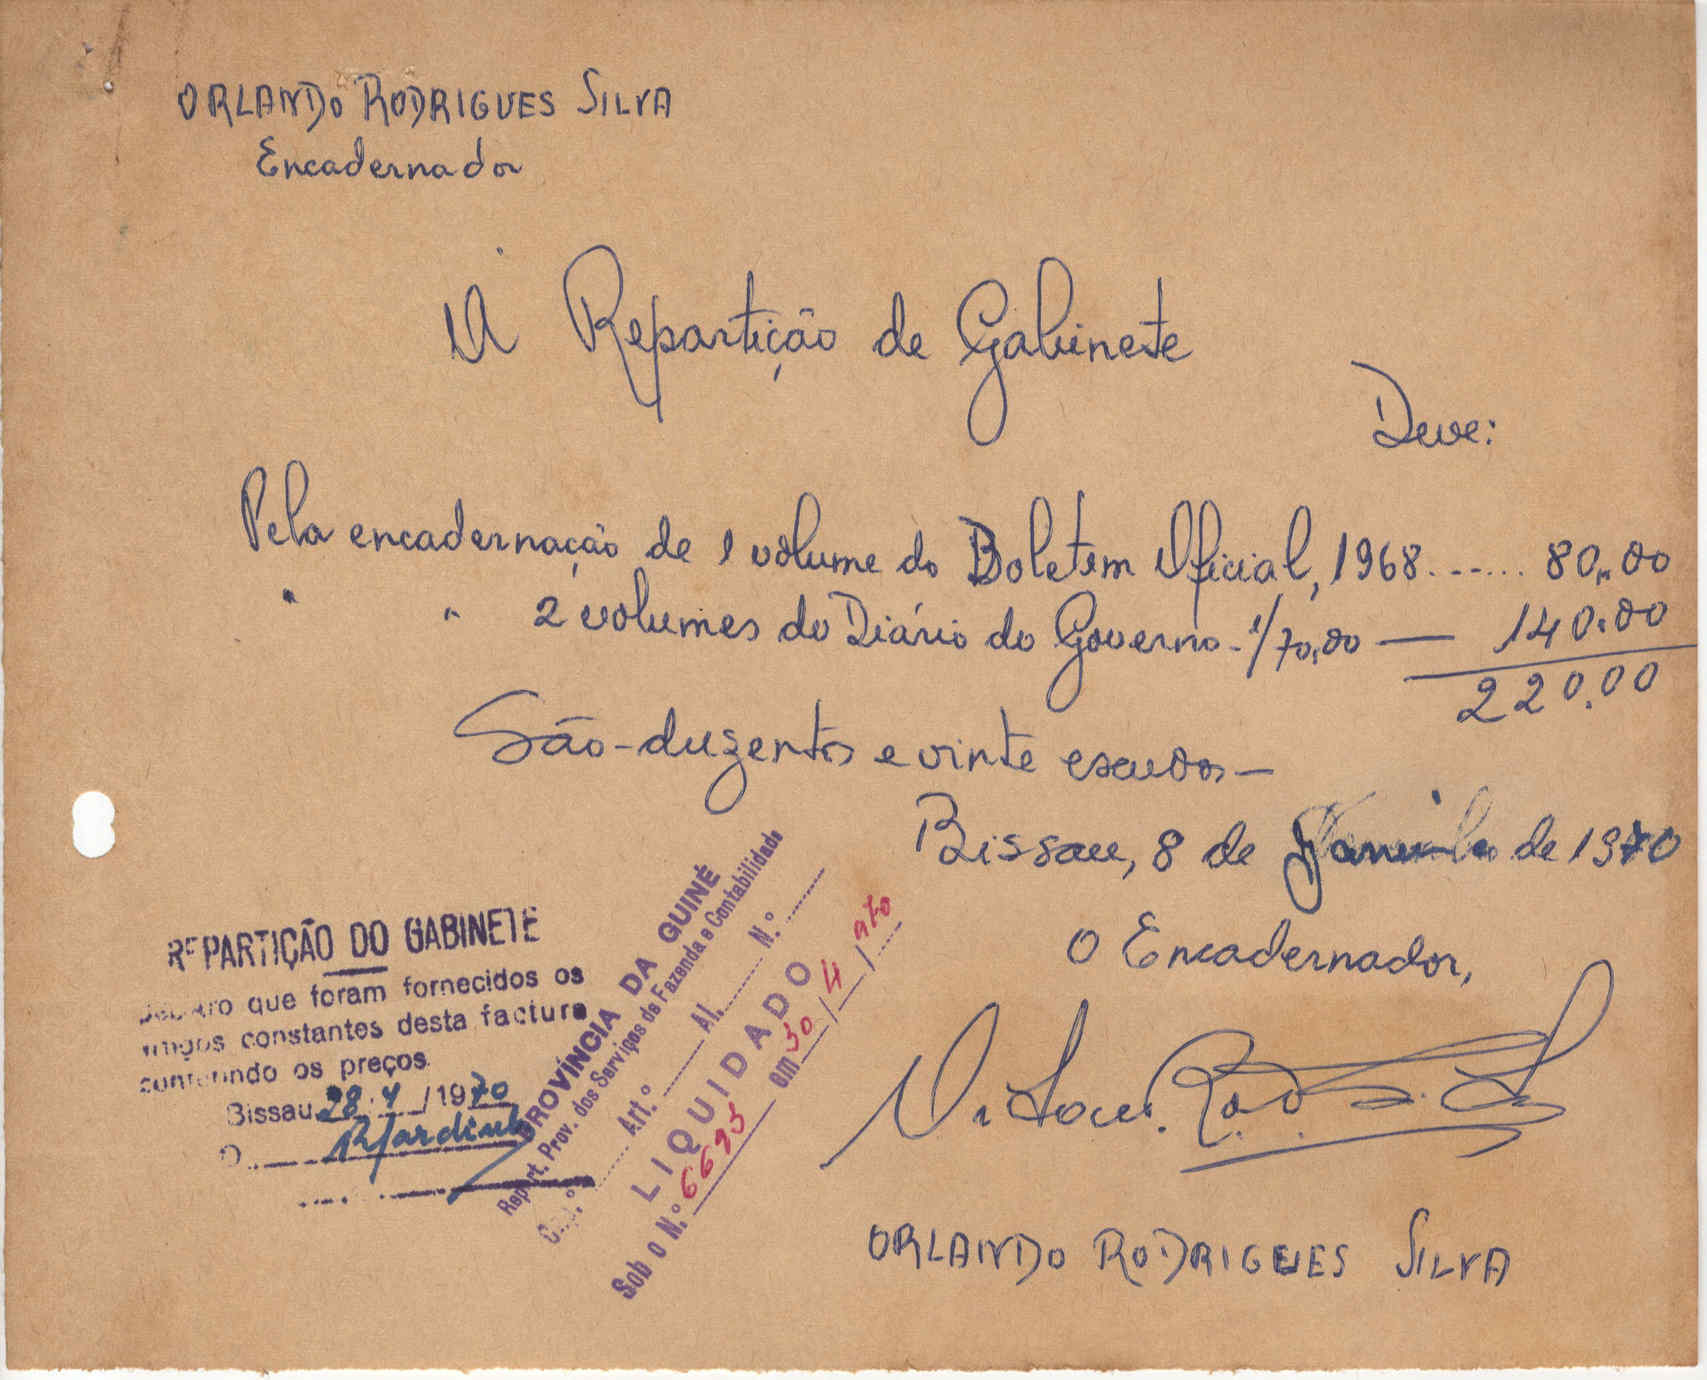 ORLANDO RODRIGUES SILVA
Encadernador
A Repartição de Gabinete
Deve:
Pela encadernação de 1 volume do Boletim Oficial, 1968...... 80,00
" " 2 volumes do Diário do Governo - 1/70,00 — 140,00
220,00
São - duzentos e vinte escudos —
Bissau, 8 de de 1970
O Encadernador,
ORLANDO RODRIGUES SILVA
REPARTIÇÃO DO GABINETE
que foram fornecidos os
constantes desta factura
os preços.
Bissau, 28.4/1970
O
PROVÍNCIA DA GUINÉ
Repart. Prov. dos Serviços de Fazenda e Contabilidade
Cap.º Art.º Al. N.º
LIQUIDADO
Sob o N.º 6693 em 30/4/970